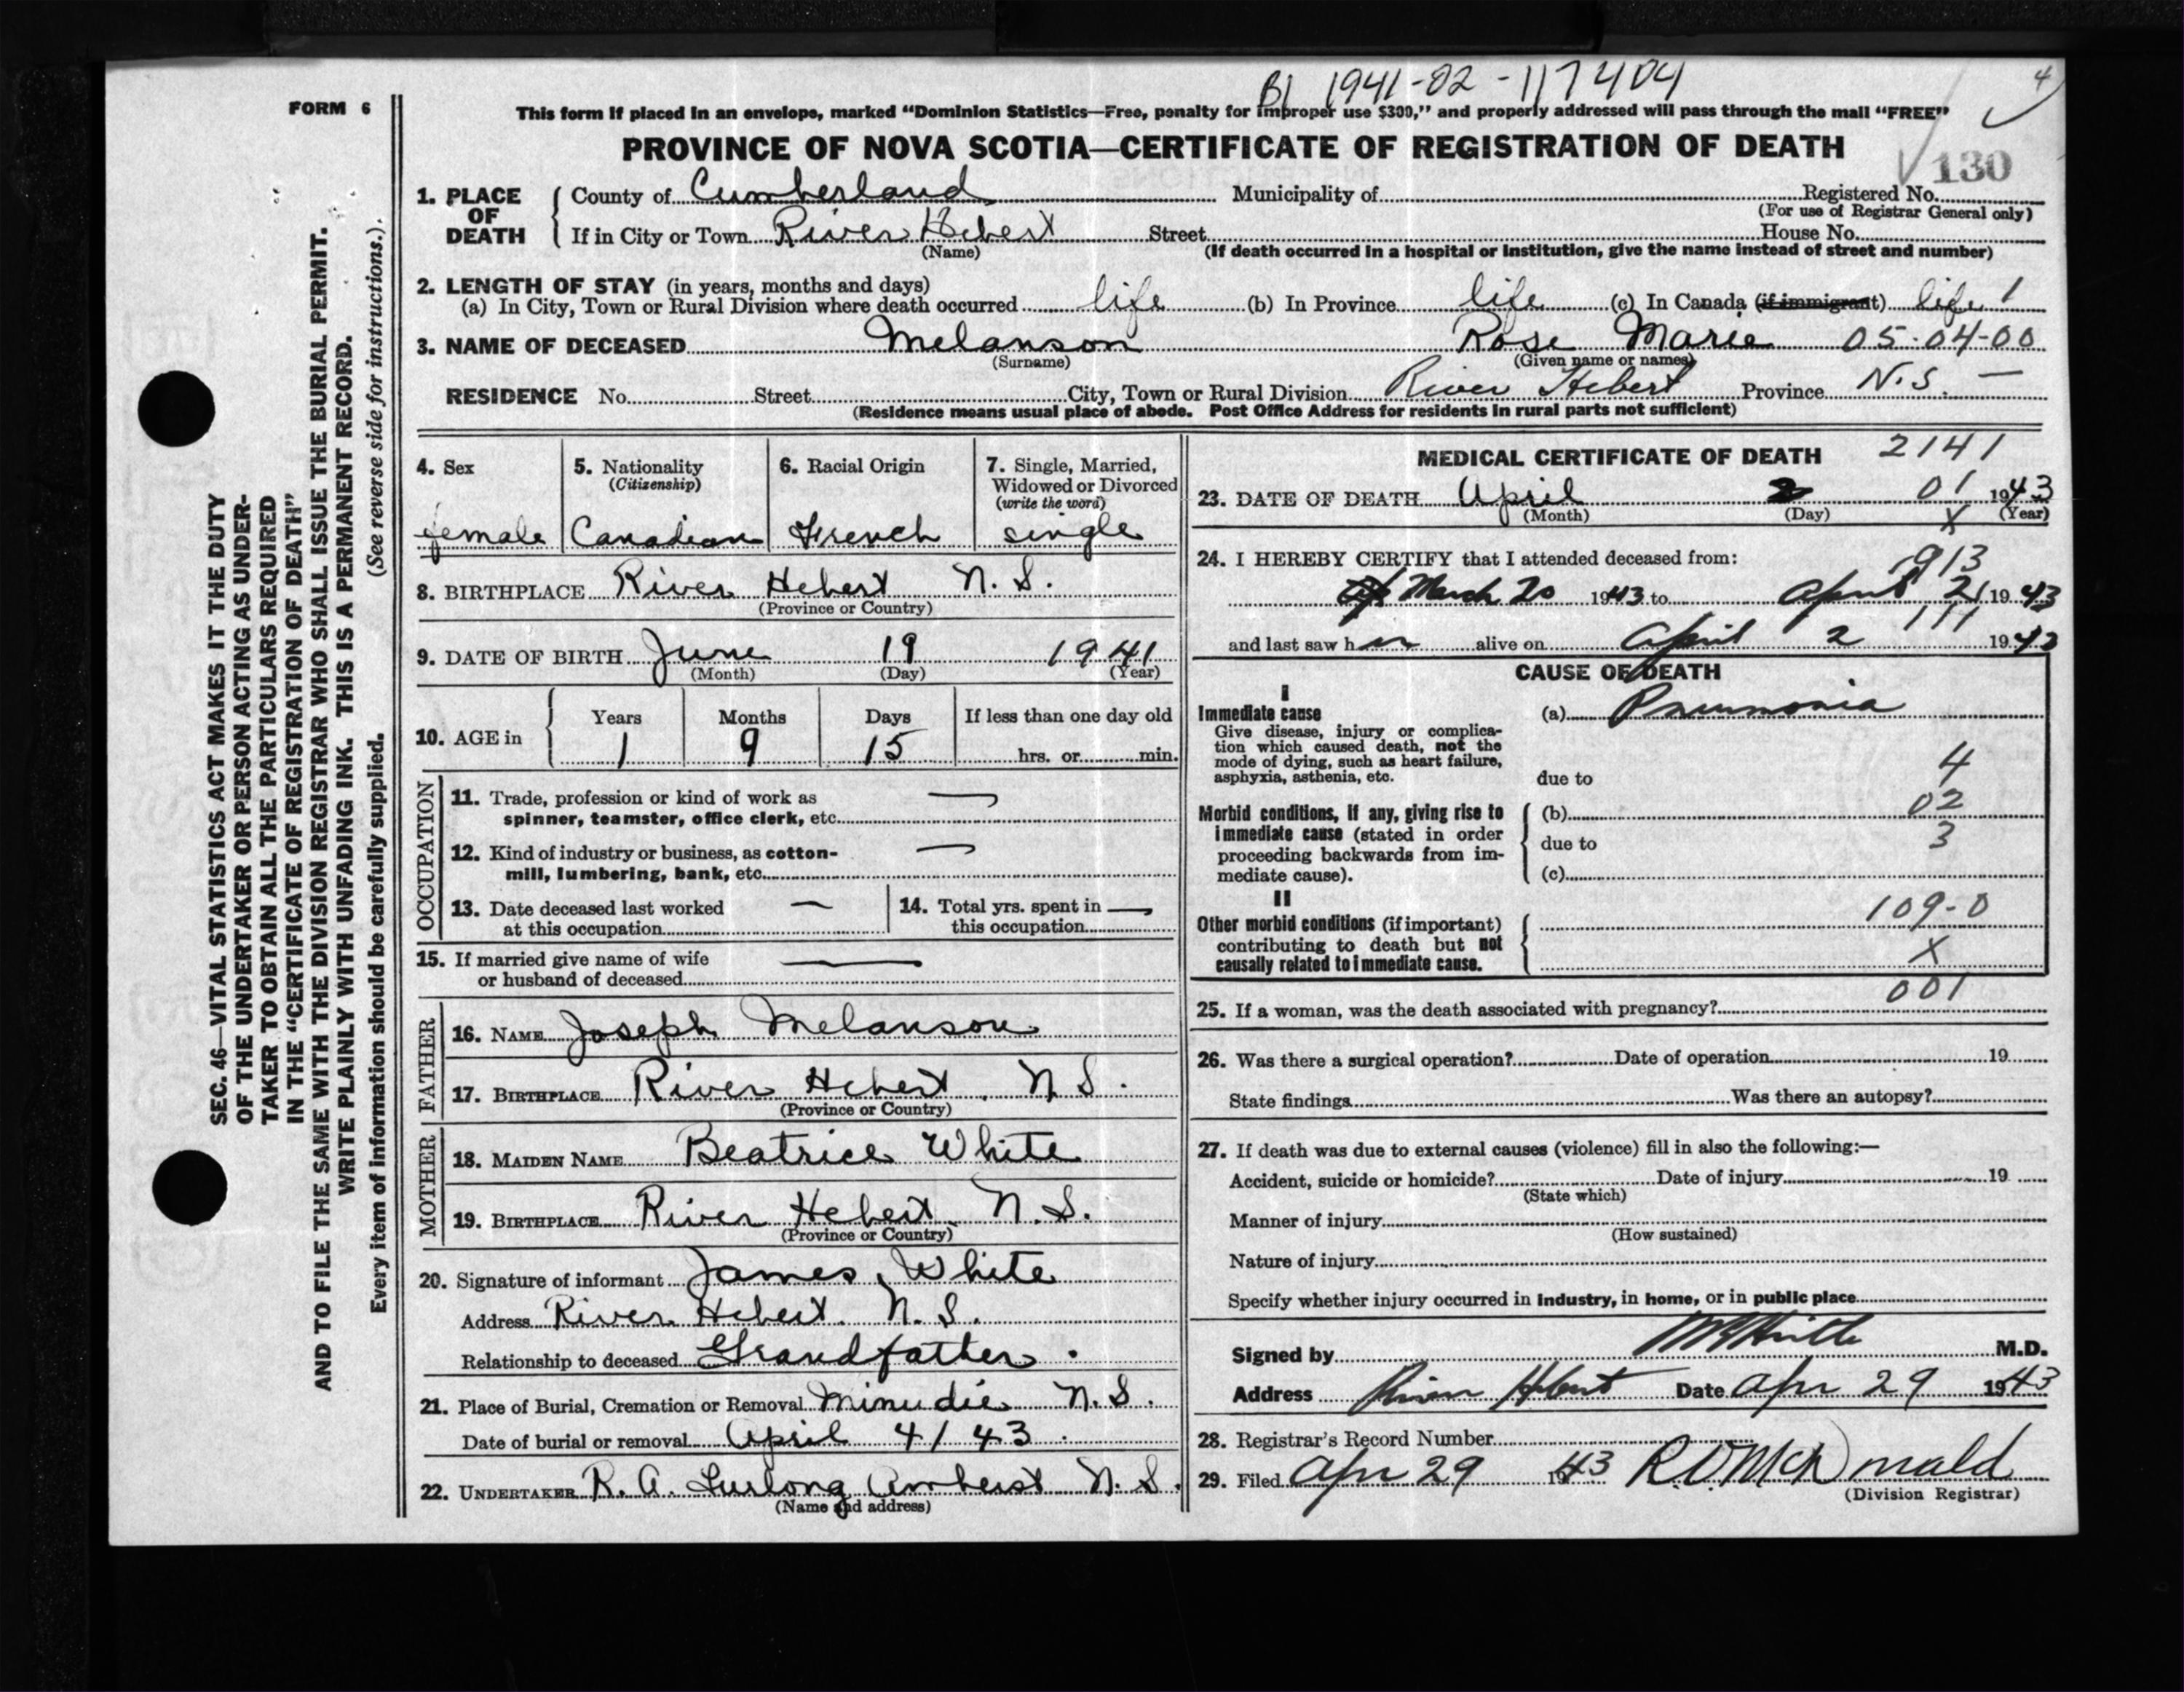 BL 1941-02-117404
4
FORM 6
This form if placed in an envelope, marked "Dominion Statistics—Free, penalty for improper use $300," and properly addressed will pass through the mail "FREE"
PROVINCE OF NOVA SCOTIA—CERTIFICATE OF REGISTRATION OF DEATH
130
1. PLACE OF DEATH { County of Cumberland Municipality of Registered No.
(For use of Registrar General only)
If in City or Town River Hebert Street House No.
(Name) (If death occurred in a hospital or institution, give the name instead of street and number)
2. LENGTH OF STAY (in years, months and days)
(a) In City, Town or Rural Division where death occurred life (b) In Province life (c) In Canada (if immigrant) life 1
3. NAME OF DECEASED Melanson Rose Marie 05-04-00
(Surname) (Given name or names)
RESIDENCE No. Street City, Town or Rural Division River Hebert Province N.S. —
(Residence means usual place of abode. Post Office Address for residents in rural parts not sufficient)
4. Sex 5. Nationality 6. Racial Origin 7. Single, Married,
(Citizenship) Widowed or Divorced
(write the word)
female Canadian French single
8. BIRTHPLACE River Hebert N.S.
(Province or Country)
9. DATE OF BIRTH June 19 1941
(Month) (Day) (Year)
10. AGE in { Years Months Days If less than one day old
1 9 15 hrs. or min.
OCCUPATION
11. Trade, profession or kind of work as —
spinner, teamster, office clerk, etc.
12. Kind of industry or business, as cotton- —
mill, lumbering, bank, etc.
13. Date deceased last worked — 14. Total yrs. spent in —
at this occupation this occupation
15. If married give name of wife —
or husband of deceased
FATHER
16. NAME Joseph Melanson
17. BIRTHPLACE River Hebert. N.S.
(Province or Country)
MOTHER
18. MAIDEN NAME Beatrice White
19. BIRTHPLACE River Hebert. N.S.
(Province or Country)
20. Signature of informant James White
Address River Hebert. N.S.
Relationship to deceased Grandfather.
21. Place of Burial, Cremation or Removal Minudie N.S.
Date of burial or removal April 4/43.
22. UNDERTAKER R. A. Furlong Amherst N.S.
(Name and address)
MEDICAL CERTIFICATE OF DEATH 2141
23. DATE OF DEATH April 2 01 1943
(Month) (Day) X (Year)
24. I HEREBY CERTIFY that I attended deceased from:
913
March 20 1943 to April 2 1943
111
and last saw her alive on April 2 1943
CAUSE OF DEATH
I
Immediate cause (a) Pneumonia
Give disease, injury or complica-
tion which caused death, not the
mode of dying, such as heart failure, 4
asphyxia, asthenia, etc. due to
02
Morbid conditions, if any, giving rise to { (b)
immediate cause (stated in order due to 3
proceeding backwards from im-
mediate cause). (c)
II
109-0
Other morbid conditions (if important) {
contributing to death but not X
causally related to immediate cause.
001
25. If a woman, was the death associated with pregnancy?
26. Was there a surgical operation? Date of operation 19
State findings Was there an autopsy?
27. If death was due to external causes (violence) fill in also the following:—
Accident, suicide or homicide? Date of injury 19
(State which)
Manner of injury
(How sustained)
Nature of injury
Specify whether injury occurred in industry, in home, or in public place
Signed by M.D.
Address River Hebert Date Apr 29 1943
28. Registrar's Record Number
29. Filed Apr 29 1943 McDonald
(Division Registrar)
SEC. 46—VITAL STATISTICS ACT MAKES IT THE DUTY
OF THE UNDERTAKER OR PERSON ACTING AS UNDER-
TAKER TO OBTAIN ALL THE PARTICULARS REQUIRED
IN THE "CERTIFICATE OF REGISTRATION OF DEATH"
AND TO FILE THE SAME WITH THE DIVISION REGISTRAR WHO SHALL ISSUE THE BURIAL PERMIT.
WRITE PLAINLY WITH UNFADING INK. THIS IS A PERMANENT RECORD.
Every item of information should be carefully supplied. (See reverse side for instructions.)